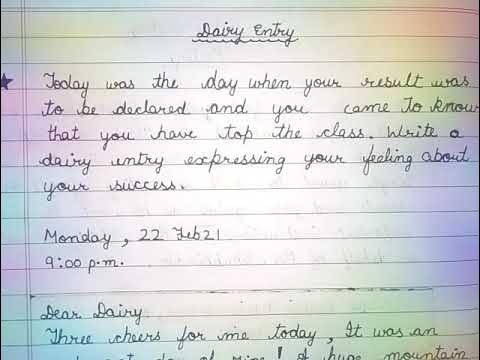 Dairy Entry
Today was the day when your result was
to be declared and you came to know
that you have top the class. Write a
dairy entry expressing your feeling about
your success.
Monday, 22 Feb21
9:00 p.m.
Dear Dairy
Three cheers for me today, It was an
day of mine! A huge mountain